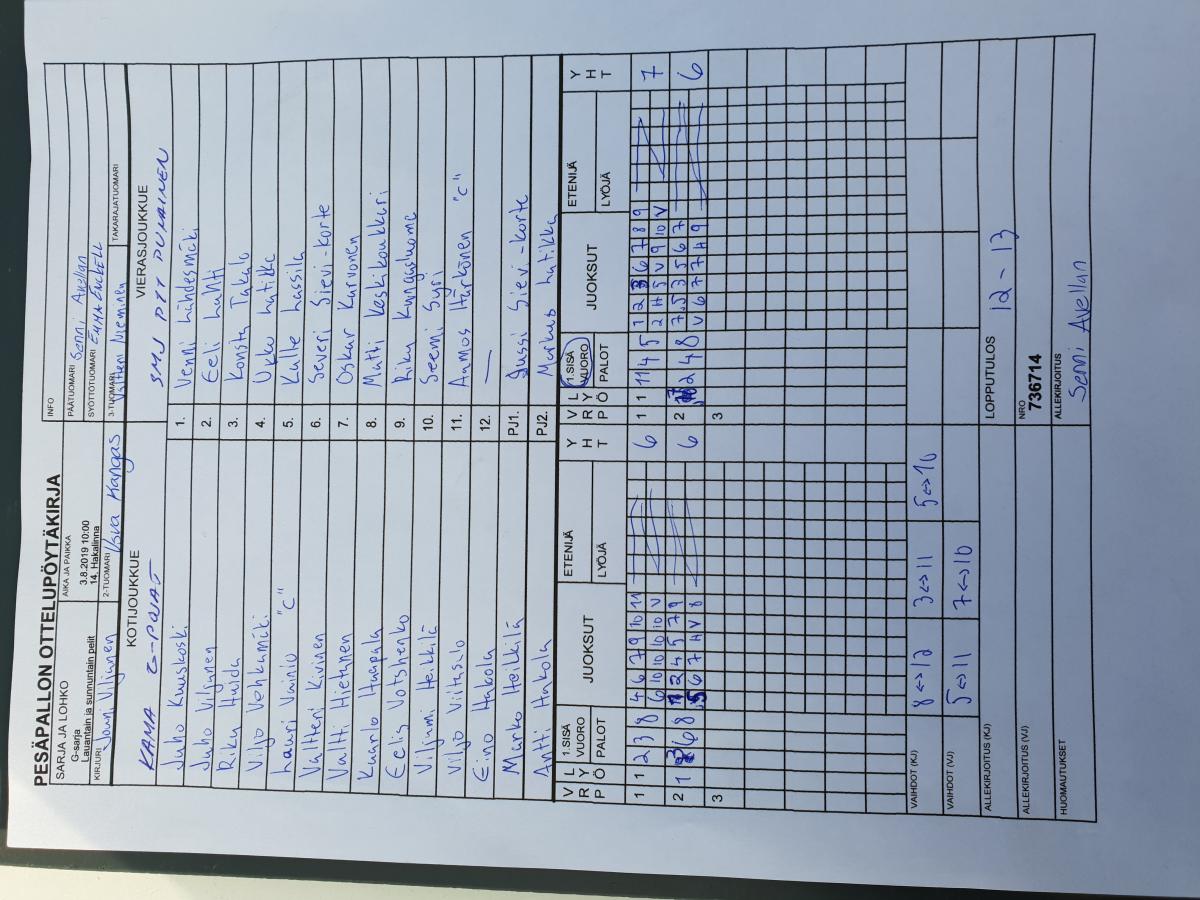 PESÄPALLON OTTELUPÖYTÄKIRJA
SARJA JA LOHKO
G-sarja
Lauantain ja sunnuntain pelit
AIKA JA PAIKKA
3.8.2019 10:00
14. Hakalinna
INFO
PÄÄTUOMARI Senni Avellan
SYÖTTÖTUOMARI
KIRJURI Jouni Viljunen
2-TUOMARI Kangas
3-TUOMARI Valtteri Nieminen
TAKARAJATUOMARI
KOTIJOUKKUE
KAMA G-POJAT
VIERASJOUKKUE
SMJ PTT PUNAINEN
Juho Kuuskoski 1. Venni Lähdesmäki
Juho Viljunen 2. Eeli Lahti
Riku Huida 3. Konsta Takalo
Viljo Vehkamäki 4. Ukko Latikka
Lauri Vainio "C" 5. Kalle Lassila
Valtteri Kivinen 6. Severi Sievi-Korte
Valtti Hietanen 7. Oskar Karvonen
Kaarlo Haapala 8. Matti Keskikoukkari
Eelis Votshenko 9. Riku Kangasluoma
Viljami Heikkilä 10. Seemi Syri
Viljo Viitasalo 11. Aamos Härkönen "C"
Eino Hakola 12. —
Marko Heikkilä PJ1. Jussi Sievi-Korte
Antti Hakola PJ2. Markus Latikka
V R P L Y Ö 1.SISÄ VUORO PALOT JUOKSUT ETENIJÄ LYÖJÄ Y H T
V R P L Y Ö 1.SISÄ VUORO PALOT JUOKSUT ETENIJÄ LYÖJÄ Y H T
1 1 2 3 8 4 6 7 9 10 11 6
6 10 10 10 10 V
1 1 11 4 5 1 2 3 6 7 8 9 7
2 4 5 V 9 10 V
2 1 6 8 2 4 5 7 9 6
5 6 7 4 V 8
2 2 4 8 7 5 3 5 6 7 6
V 6 7 7 4 9
3
3
VAIHDOT (KJ) 8↔12 3↔11 5↔10
VAIHDOT (VJ) 5↔11 7↔10
ALLEKIRJOITUS (KJ)
LOPPUTULOS 12 - 13
ALLEKIRJOITUS (VJ)
NRO
736714
HUOMAUTUKSET
ALLEKIRJOITUS
Senni Avellan